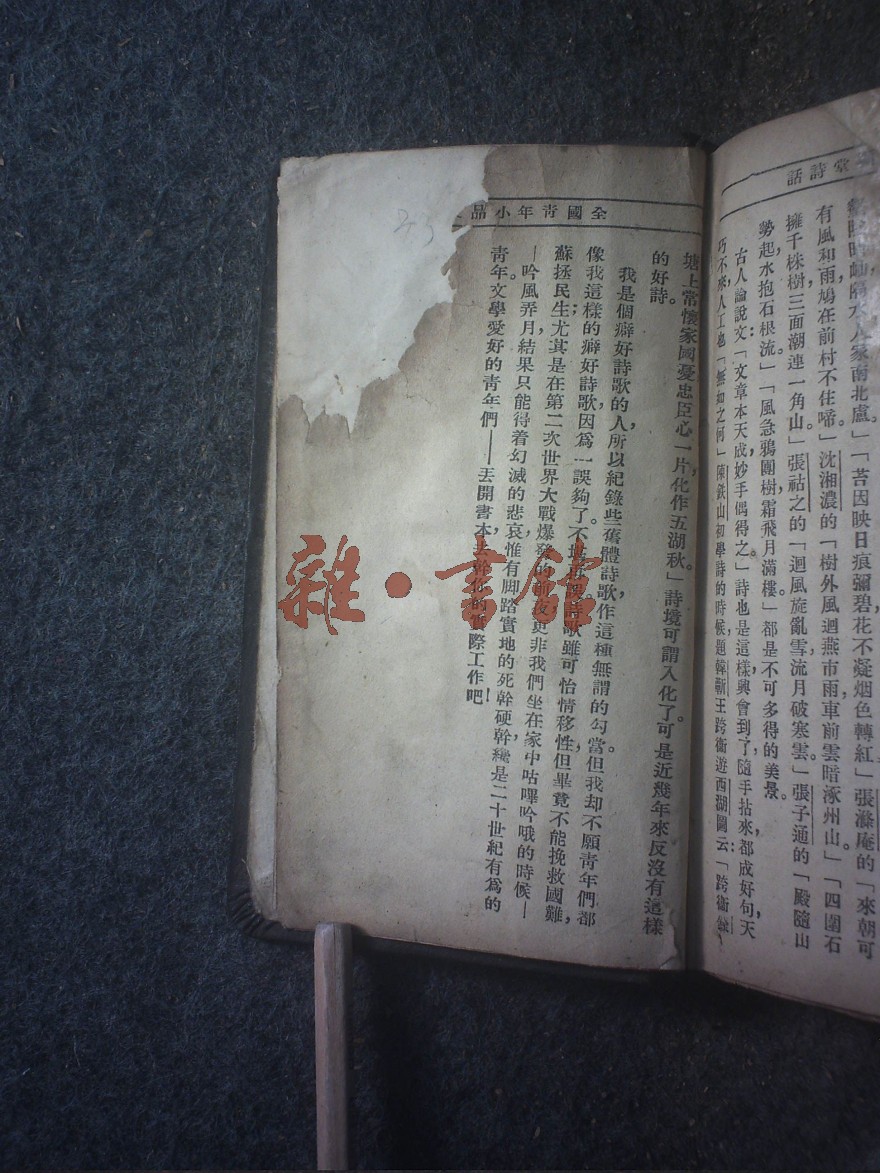 堂詩話
有風和雨鳩在前村不住啼」沈湘濃的「樹外風迴燕市雨，車前雲暗涿州山」「四圍石
擁千株樹，三面潮連一角山」張祜之的「迴風旋亂雪，流月破寒雲」張子通的「殿隨山
勢起，水抱石根流」「風急鴉團樹，霜飛月滿樓。」都是不可多得的美景。
古人論說文：「文章本天成，妙手偶得之。」詩也是這樣，興會到了，隨手拈來，都成好句，天
巧不來，人工也「無如之何」陳鉄山初學詩的時候，題韓蘄王跨衛遊西湖圖云：「跨衛
全國青年小品
塘上常懷家國憂，忠臣心一片，化作五湖秋。」詩境可謂入化了。可是近幾年來反沒有這樣
的好詩。
我是個癖好詩歌的人，所以紀錄些舊體詩歌，作這種無謂的勾當。但我却不願青年們都
像我這樣的癖好詩歌，因爲一誤夠了，不誤詩歌雖可怡情移性，但畢竟不能挽救國難，
蘇拯民生；尤其是在第二次世界大戰爆發的更非我們坐在家中咕嗶吟哦的時候—
—吟風弄月，結果只能得着幻滅的悲哀，惟有脚踏實地的死幹硬幹，纔是二十世紀有爲的
青年。文學愛好的青年們——丟開書本，去幹你的實際工作吧！
雜·書館